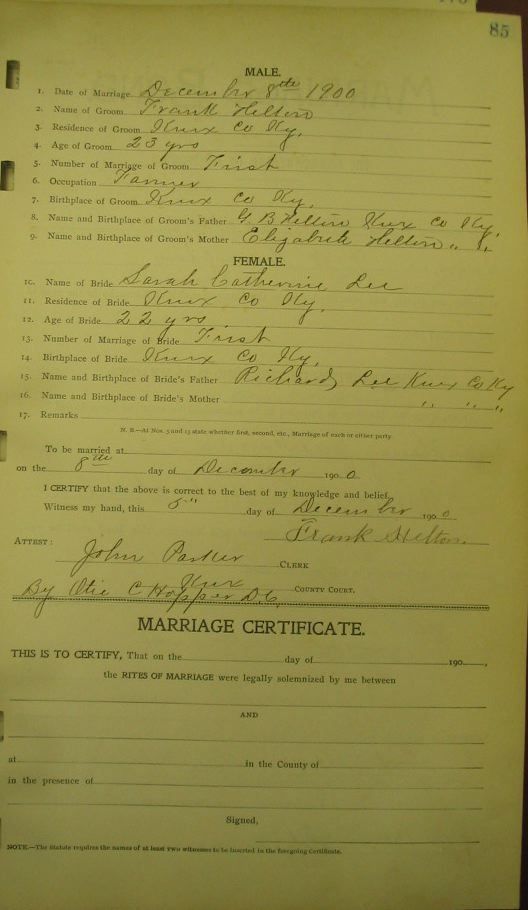 85
MALE.
1. Date of Marriage December 8th 1900
2. Name of Groom Frank Helton
3. Residence of Groom Knox Co Ky,
4. Age of Groom 23 yrs
5. Number of Marriage of Groom First
6. Occupation Farmer
7. Birthplace of Groom Knox Co Ky,
8. Name and Birthplace of Groom's Father G. B Helton Knox Co Ky,
9. Name and Birthplace of Groom's Mother Elizabeth Helton " "
FEMALE.
10. Name of Bride Sarah Catherine Lee
11. Residence of Bride Knox Co Ky,
12. Age of Bride 22 yrs
13. Number of Marriage of Bride First
14. Birthplace of Bride Knox Co Ky,
15. Name and Birthplace of Bride's Father Richard Lee Knox Co Ky
16. Name and Birthplace of Bride's Mother " " "
17. Remarks
N. B.—At Nos. 5 and 13 state whether first, second, etc., Marriage of each or either party.
To be married at
on the 8th day of December 1900
I CERTIFY that the above is correct to the best of my knowledge and belief.
Witness my hand, this 8" day of December 1900
Frank Helton.
ATTEST: John Parker CLERK
Knox COUNTY COURT.
By Otie C Hopper D.C.
MARRIAGE CERTIFICATE.
THIS IS TO CERTIFY, That on the day of 190 ,
the RITES OF MARRIAGE were legally solemnized by me between
AND
at in the County of
in the presence of
Signed,
NOTE.—The Statute requires the names of at least two witnesses to be inserted in the foregoing Certificate.